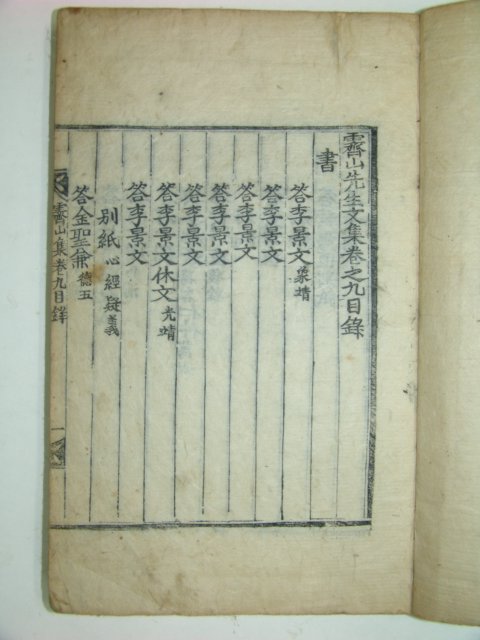 霽山先生文集卷之九目錄
書
答李景文象靖
答李景文
答李景文
答李景文
答李景文
答李景文休文光靖
答李景文
別紙心經疑義
答金聖兼德五
霽山集卷九目錄
一